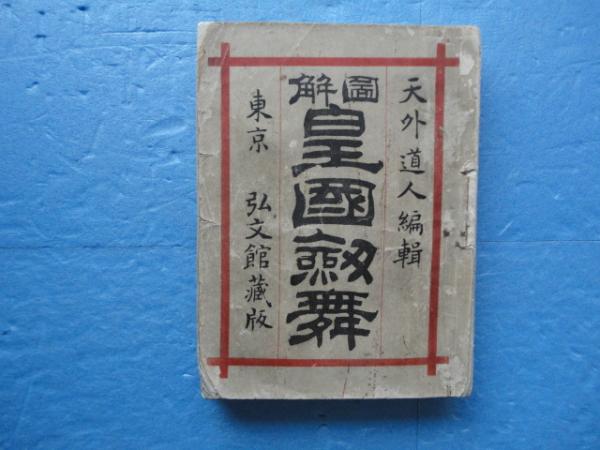 天外道人編輯
圖解
皇國劔舞
東京 弘文館藏版